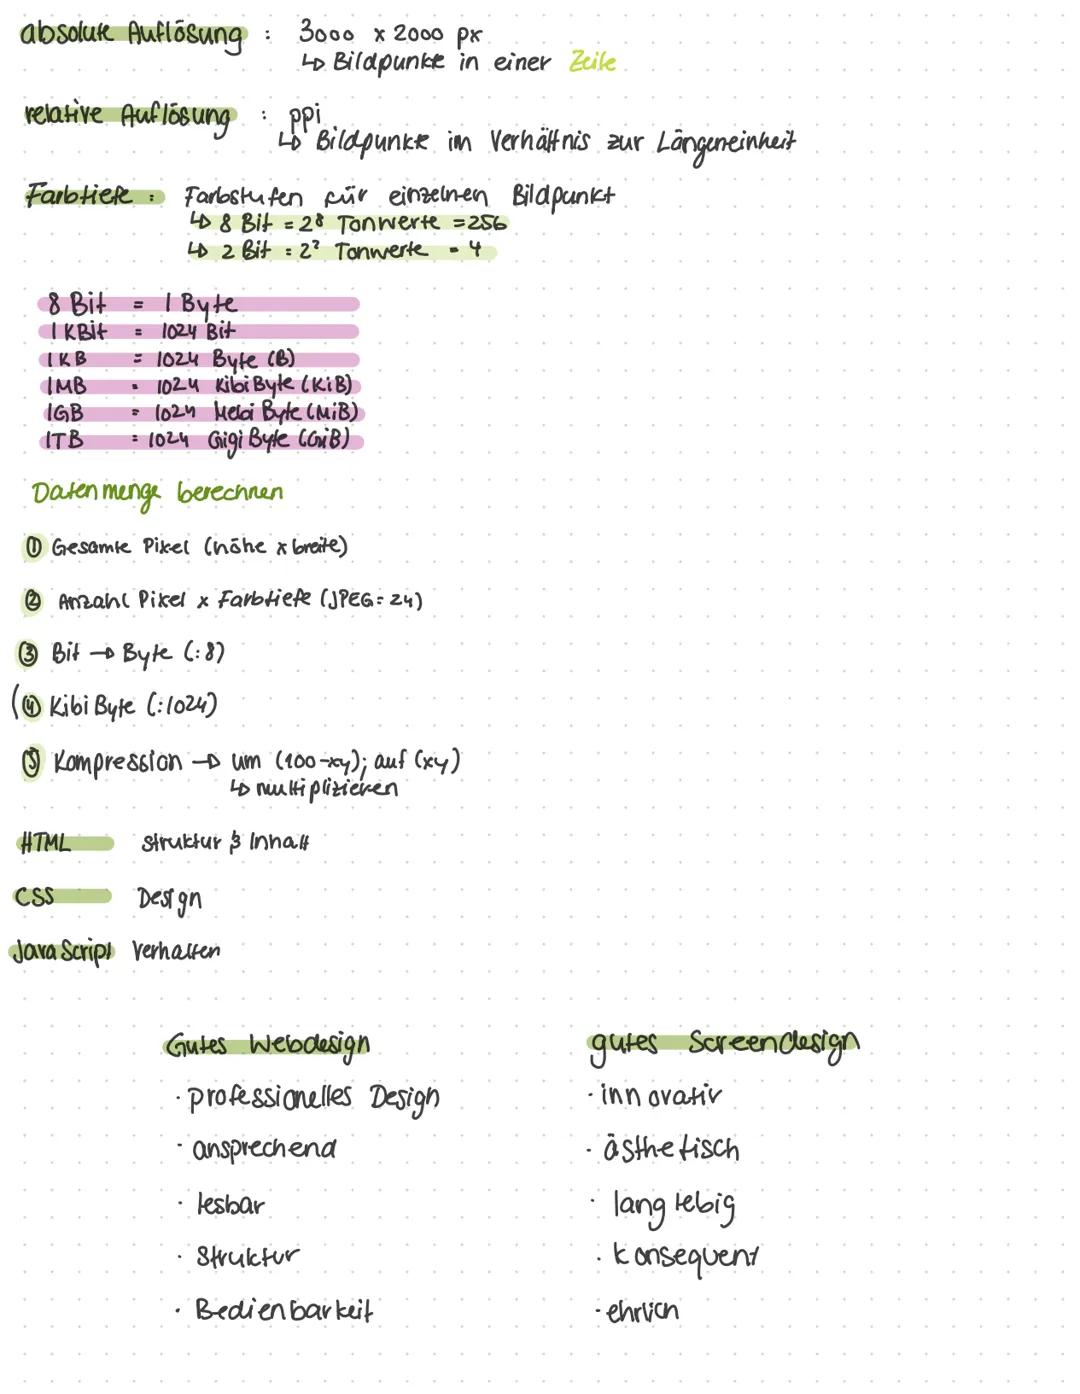 absolute Auflösung : 3000 x 2000 px
↳ Bildpunkte in einer Zeile
relative Auflösung : ppi
↳ Bildpunkte im Verhältnis zur Längeneinheit
Farbtiefe : Farbstufen für einzelnen Bildpunkt
↳ 8 Bit = 2⁸ Tonwerte = 256
↳ 2 Bit = 2² Tonwerte = 4
8 Bit = 1 Byte
1 KBit = 1024 Bit
1 KB = 1024 Byte (B)
1MB = 1024 KibiByte (KiB)
1GB = 1024 MebiByte (MiB)
1TB = 1024 GigiByte (GiB)
Datenmenge berechnen
① Gesamte Pixel (höhe x breite)
② Anzahl Pixel x Farbtiefe (JPEG = 24)
③ Bit → Byte (:8)
(④ KibiByte (:1024)
⑤ Kompression → um (100-xy); auf (xy)
↳ multiplizieren
HTML Struktur & Inhalt
CSS Design
JavaScript Verhalten
Gutes Webdesign
· professionelles Design
· ansprechend
· lesbar
· Struktur
· Bedienbarkeit
gutes Screendesign
· innovativ
· ästhetisch
· langlebig
· konsequent
· ehrlich